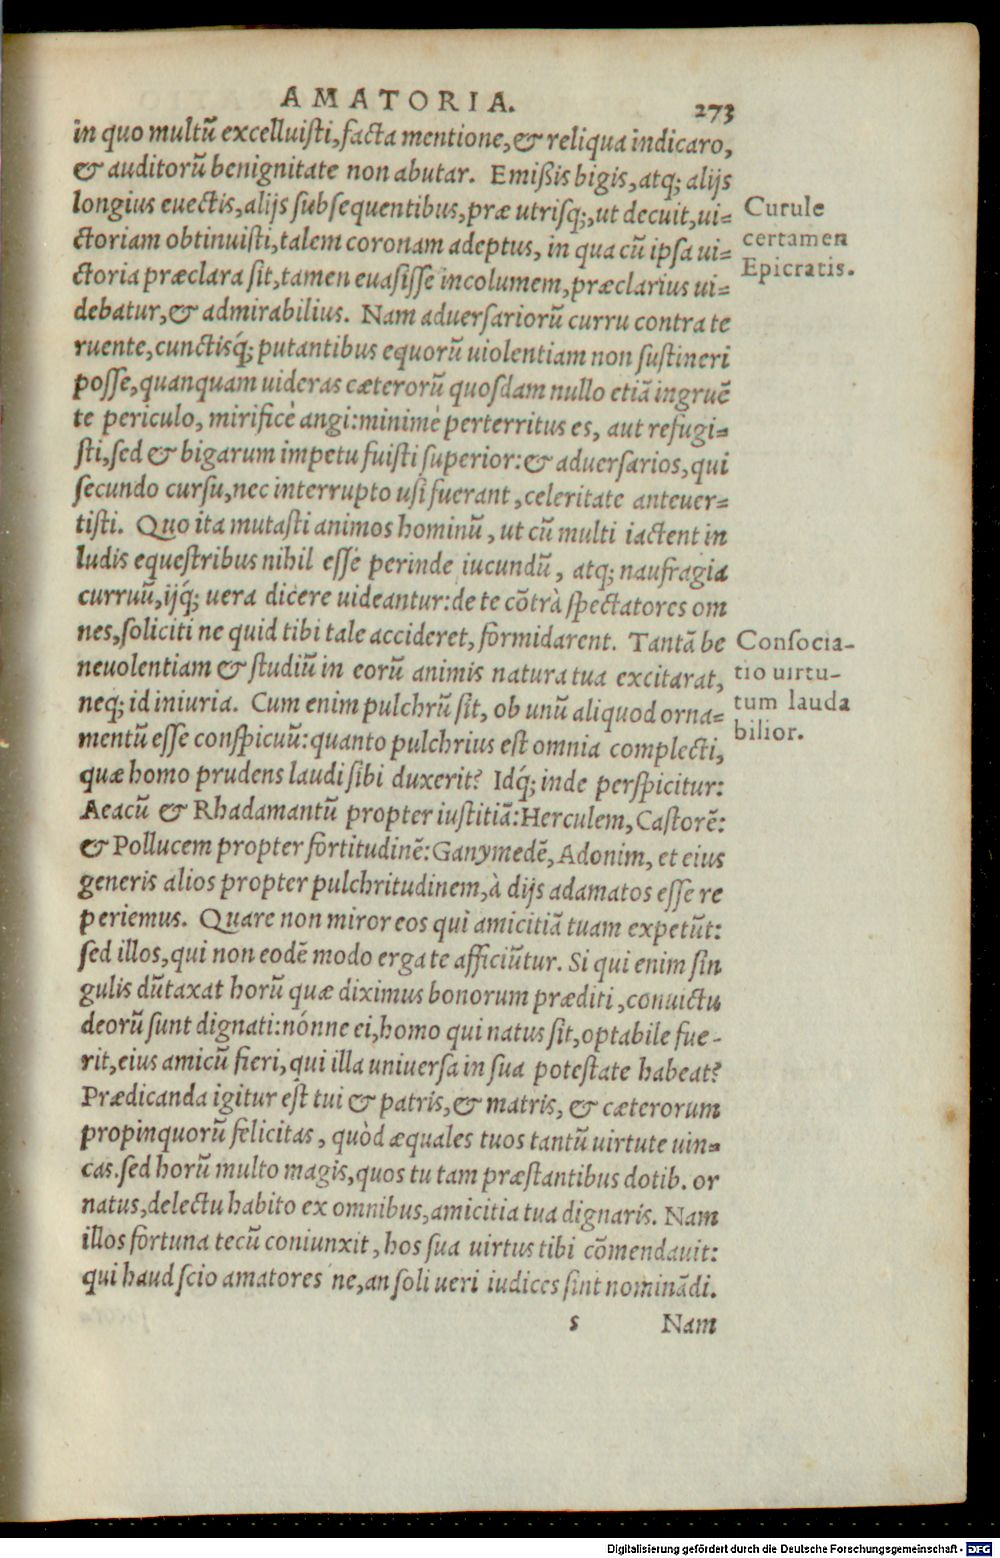 AMATORIA. 273
in quo multū excelluisti, facta mentione, & reliqua indicaro,
& auditorū benignitate non abutar. Emißis bigis, atq; alijs
longius euectis, alijs subsequentibus, præ utrisq;, ut decuit, ui=
ctoriam obtinuisti, talem coronam adeptus, in qua cū ipsa ui=
ctoria præclara sit, tamen euasisse incolumem, præclarius ui=
debatur, & admirabilius. Nam aduersariorū curru contra te
ruente, cunctisq́; putantibus equorū uiolentiam non sustineri
posse, quanquam uideras cæterorū quosdam nullo etiā ingruē
te periculo, mirificè angi: minimè perterritus es, aut refugi=
sti, sed & bigarum impetu fuisti superior: & aduersarios, qui
secundo cursu, nec interrupto usi fuerant, celeritate anteuer=
tisti. Quo ita mutasti animos hominū, ut cū multi iactent in
ludis equestribus nihil esse perinde iucundū, atq; naufragia
curruū, ijq́; uera dicere uideantur: de te cōtrà spectatores om
nes, soliciti ne quid tibi tale accideret, formidarent. Tantā be
neuolentiam & studiū in eorū animis natura tua excitarat,
neq; id iniuria. Cum enim pulchrū sit, ob unū aliquod orna=
mentū esse conspicuū: quanto pulchrius est omnia complecti,
quæ homo prudens laudi sibi duxerit? Idq́; inde perspicitur:
Aeacū & Rhadamantū propter iustitiā: Herculem, Castorē:
& Pollucem propter fortitudinē: Ganymedē, Adonim, et eius
generis alios propter pulchritudinem, à dijs adamatos esse re
periemus. Quare non miror eos qui amicitiā tuam expetūt:
sed illos, qui non eodē modo erga te afficiūtur. Si qui enim sin
gulis dūtaxat horū quæ diximus bonorum præditi, conuictu
deorū sunt dignati: nónne ei, homo qui natus sit, optabile fue-
rit, eius amicū fieri, qui illa uniuersa in sua potestate habeat?
Prædicanda igitur est tui & patris, & matris, & cæterorum
propinquorū felicitas, quòd æquales tuos tantū uirtute uin=
cas. sed horū multo magis, quos tu tam præstantibus dotib. or
natus, delectu habito ex omnibus, amicitia tua dignaris. Nam
illos fortuna tecū coniunxit, hos sua uirtus tibi cōmendauit:
qui haud scio amatores ne, an soli ueri iudices sint nominādi.
s Nam
Curule
certamen
Epicratis.
Consocia-
tio uirtu-
tum lauda
bilior.
Digitalisierung gefördert durch die Deutsche Forschungsgemeinschaft - DFG